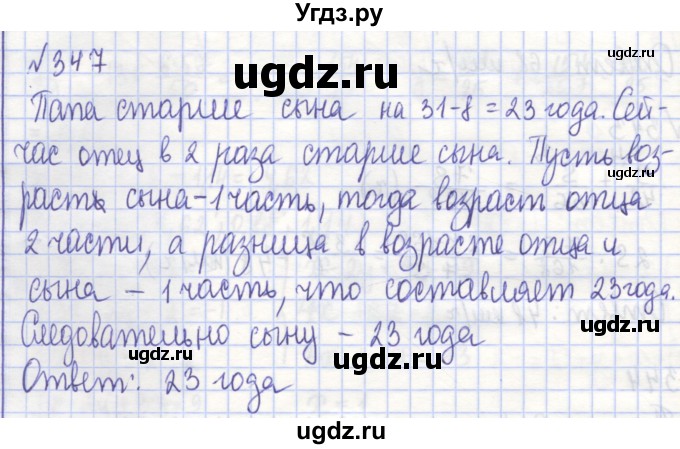 Угдз.ру
√347
ugdz.ru
Папа старше сына на 31-8=23 года. Сей-
час отец в 2 раза старше сына. Пусть воз-
ugdz.ru
раст сына-1часть, тогда возраст отца
2 части, а разница в возрасте отца и
ugdz.ru
ugdz.ru
сына – 1 часть, что составляет 23года.
Следовательно сыну – 23 года
ugdz.ru
ugdz.ru
Ответ: 23 года
ugdz.ru